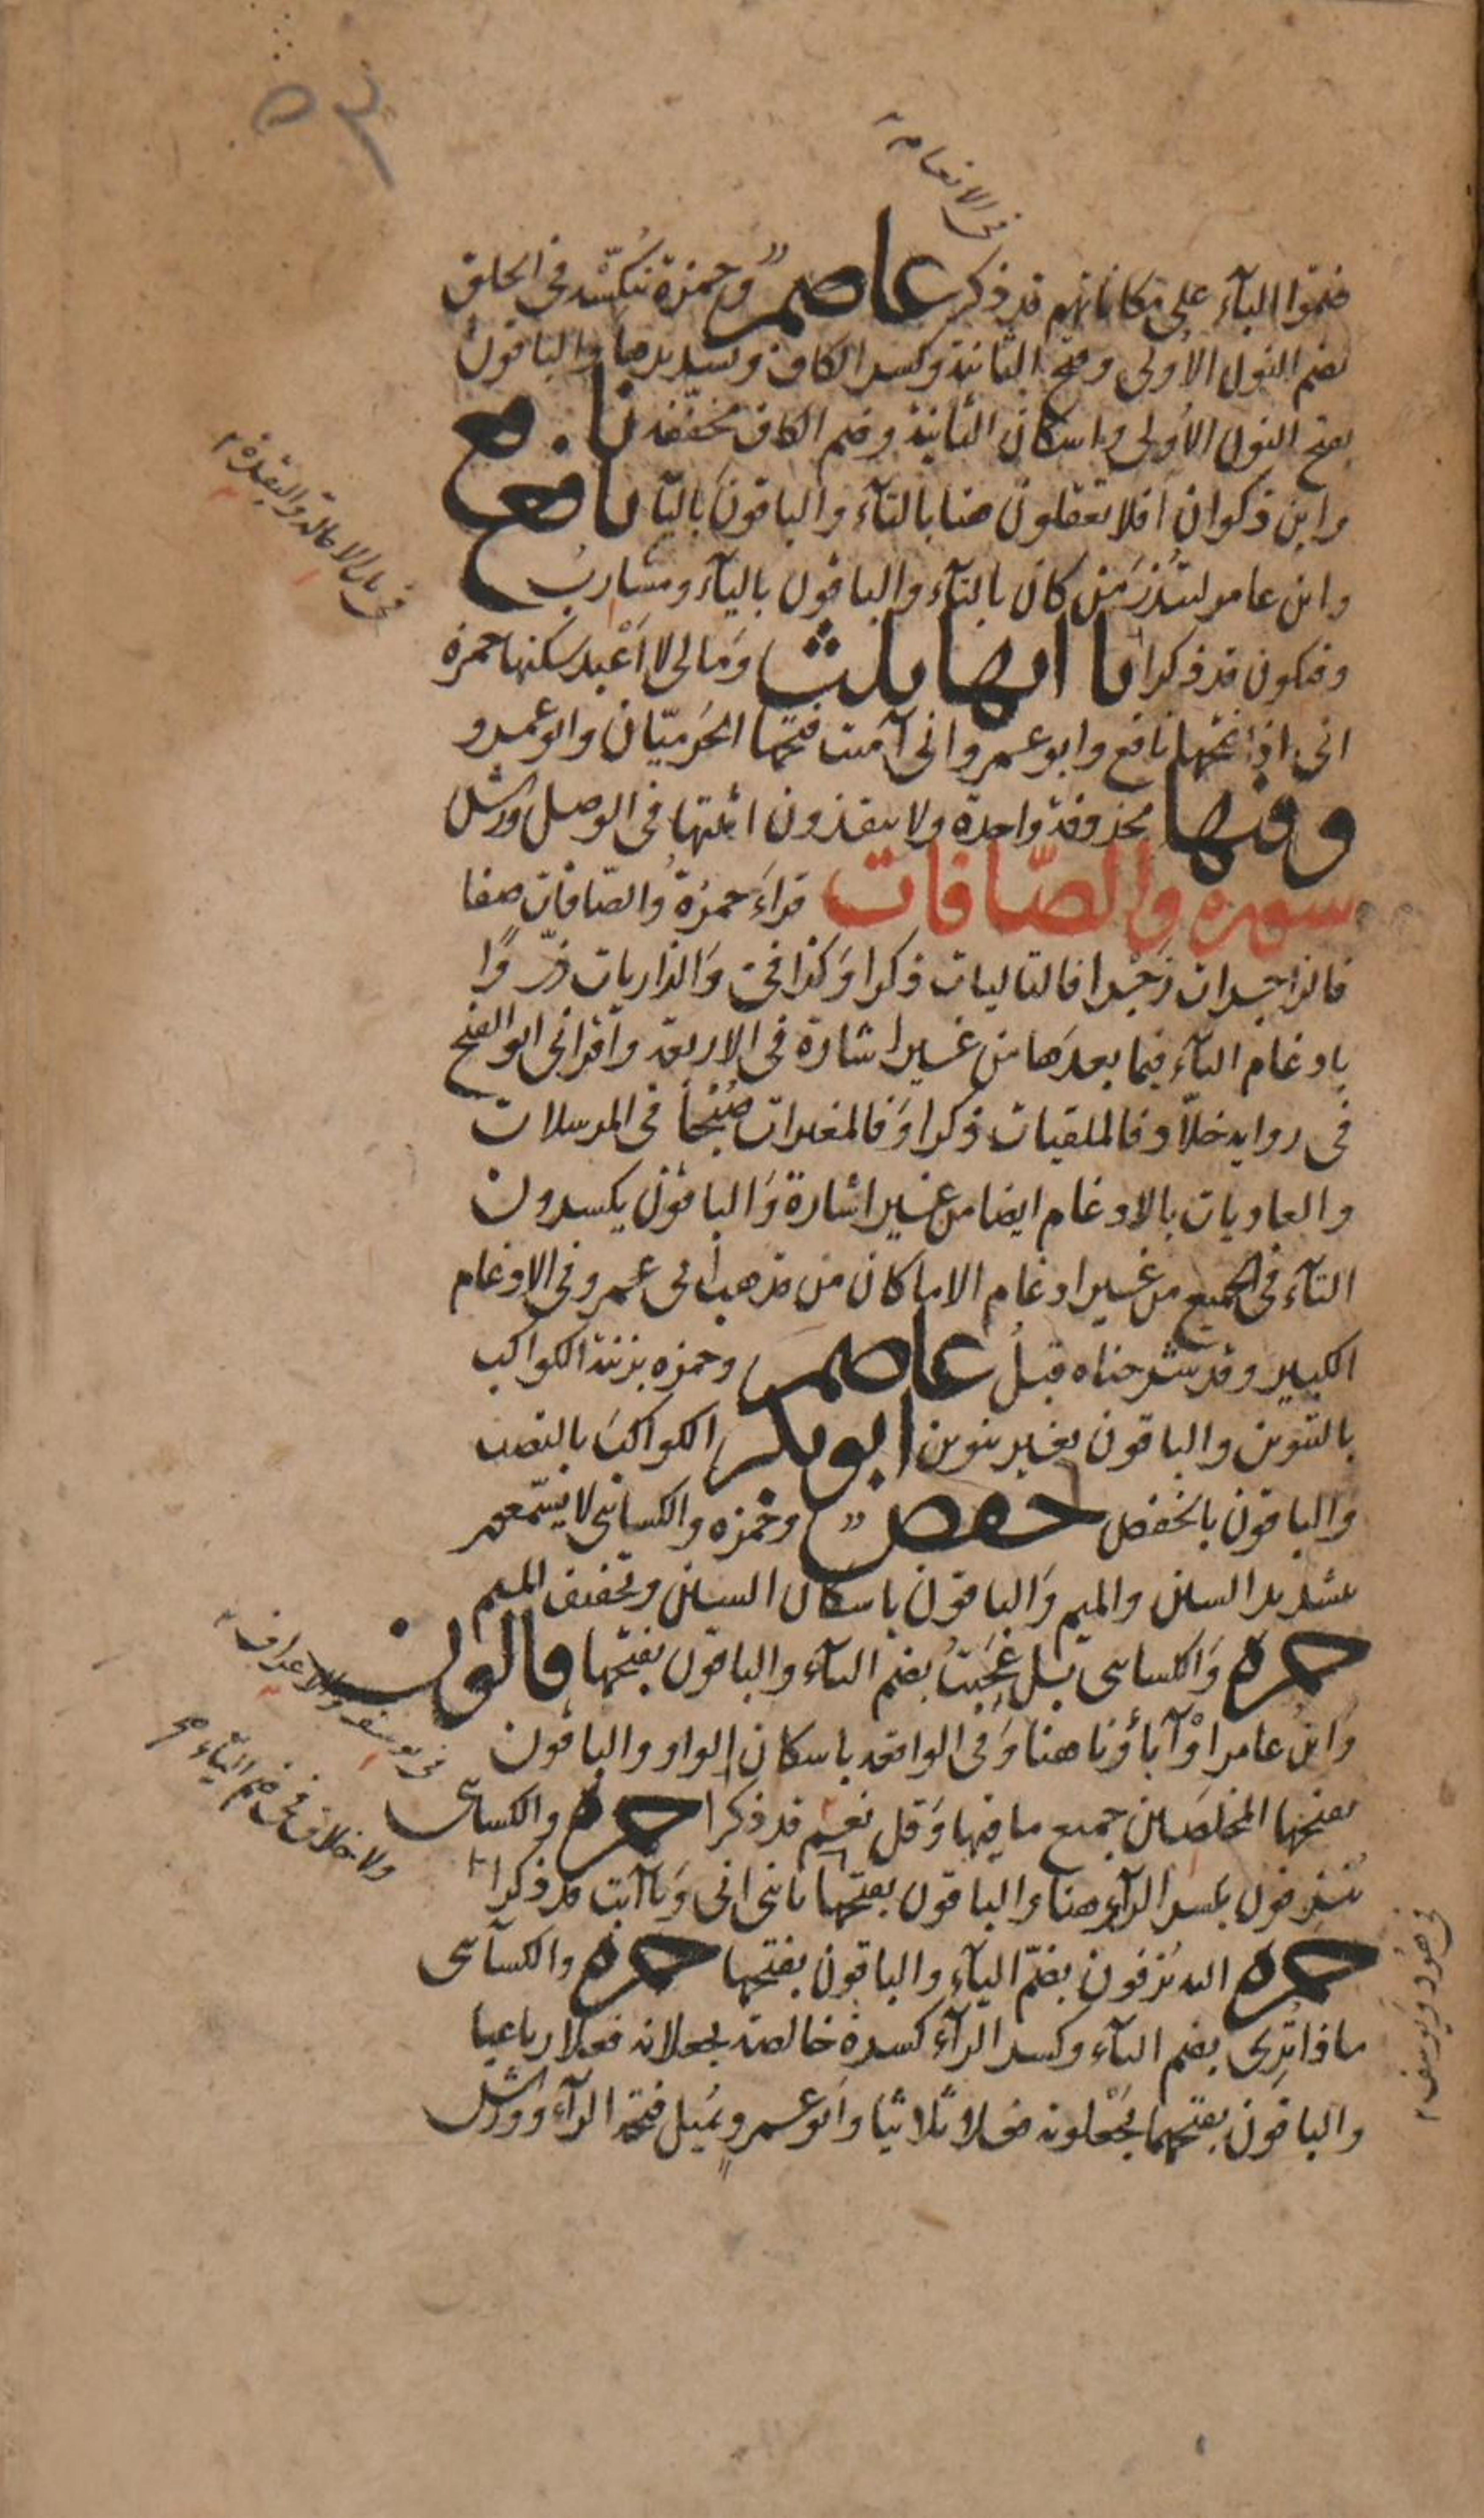 ٥٣
في الانعام
ضموا الباء على مكاناتهم قد ذكر عاصم وحمزة نُنَكِّسْه في الخلق
بضم النون الاولى وفتح الثانية وكسر الكاف وتشديدها والباقون
بفتح النون الاولى واسكان الثانية وضم الكاف مخففة نافع
وابن ذكوان افلا تعقلون هنا بالتاء والباقون بالياء نافع
في باب الامالة والبقرة
وابن عامر لتنذر من كان بالتاء والباقون بالياء ومشارب
وفيكون قد ذكرا يا اتها ثلث وما لي لا اعبد سكنها حمزة
اني اذا فتحها نافع وابو عمرو اني آمنت فتحها الحرميّان وابو عمرو
وفيها محذوفة واحدة ولا ينقذون اثبتها في الوصل ورش
سورة والصّافات قراَ حمزةُ والصّافات صفا
فالزاجرات زجرا فالتاليات ذكرا وكذا في والذاريات ذروًا
بادغام التاء فيما بعدها من غير اشارة في الاربعة واقراني ابو الفتح
في رواية خلاّد فالملقيات ذكرا وَفالمغيرات صُبْحًا في المرسلات
والعاديات بالادغام ايضا من غير اشارة وَالباقون يكسرون
التاء في الجميع من غير ادغام الا ما كان من مذهب ابي عمرو في الادغام
الكبير وقد شرحناه قبلُ عاصم وحمزه بزينة الكواكب
بالتنوين والباقون بغير تنوين ابو بكر الكواكبَ بالنصب
والباقون بالخفض حفص وحمزه والكسائي لا يسّمعون
بتشديد السين والميم وَالباقون باسكان السين وتخفيف الميم
حمزه وَالكسائي بل عجبتُ بضم التاء والباقون بفتحها قالون
في يوسف والاعراف
وَابن عامر اوْ آباؤنا هنا وَفي الواقعه باسكان الواو والباقون
ولا خلاف في ضم الياء صح
بفتحها المخلصين جميع ما فيها وَقل نعم قد ذكرا حمزه والكسائي
يُنزِفون بكسر الزاي هنا والباقون بفتحها يا بني اني وَيا ابت قد ذكرا
في هود ويوسف
حمزه اليه يُزفون بضمّ الياء والباقون بفتحها حمزه والكسآئي
ماذا تُرِي بضم التاء وكسر الراء كسرة خالصة يجعلانه فعلا رباعيا
والباقون بفتحهما يَجْعلونه فعلا ثلاثيا وَابو عمرو يُميل فتحة الراء وورش